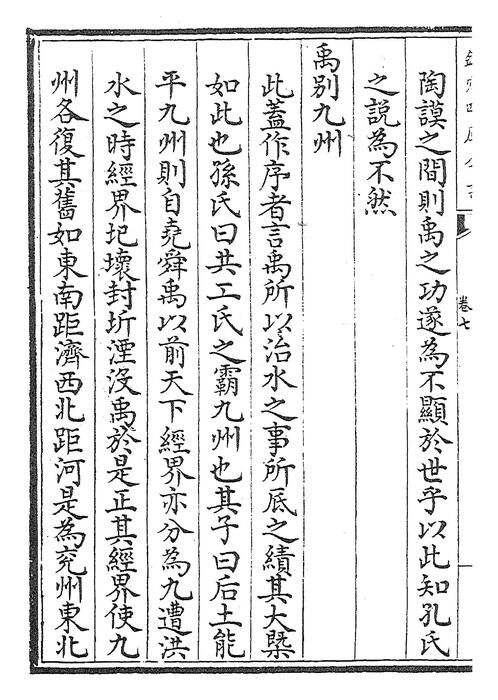 陶謨之間則禹之功遂為不顯於世乎以此知孔氏
之説為不然
禹别九州
此蓋作序者言禹所以治水之事所底之績其大槩
如此也孫氏曰共工氏之霸九州也其子曰后土能
平九州則自堯舜禹以前天下經界亦分為九遭洪
水之時經界圮壞封圻湮没禹於是正其經界使九
州各復其舊如東南距濟西北距河是為兖州東北
卷七